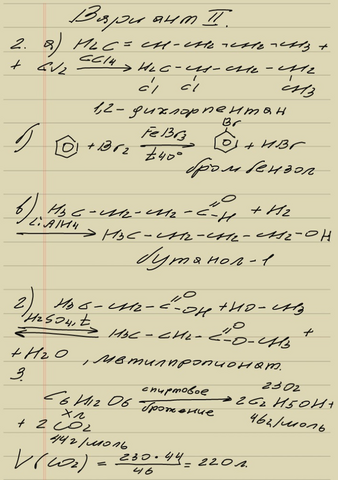 Вариант II.
2. а) H₂C = CH - CH₂ - CH₂ - CH₃ +
+ Cl₂ CCl₄ → H₂C - CH - CH₂ - CH₂
Cl Cl CH₃
1,2-дихлорпентан
Br
б) + Br₂ FeBr₃ t40° → + HBr
бромбензол
в) H₃C - CH₂ - CH₂ - C =O -H + H₂
LiAlH₄ → H₃C - CH₂ - CH₂ - CH₂ - OH
бутанол-1
г) H₃C - CH₂ - C =O -OH + HO - CH₃
H₂SO₄, t ⇌ H₃C - CH₂ - C =O -O - CH₃ +
+ H₂O , метилпропионат.
3.
230г
C₆H₁₂O₆ спиртовое брожение → 2C₂H₅OH +
хл 46г/моль
+ 2CO₂
44г/моль
V(CO₂) = 230 · 44 / 46 = 220л.